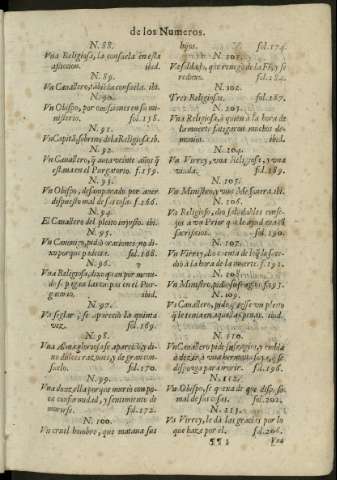 de los Numeros.
N. 88.
Vna Religiosa, la consuela en esta
afliccion. ibid.
N. 89.
Vn Cauallero, tambien consuela. ibi.
N. 90.
Vn Obispo, por consiones en su mi-
nisterio. fol. 158.
N. 91.
Vn Capitã, sobre vna Religiosa. ib.
N. 92.
Vn Cauallero, q̃ auia veinte años q̃
estaua en el Purgatorio. f. 159.
N. 93.
Vn Obispo, desamparado por auer
dispuesto mal de su casa. f. 266.
N. 94.
El Cauallero del pleito injusto. ibi.
N. 95.
Vn Canonigo, pidio oraciones, no di-
xo por que padece. fol. 168.
N. 96.
Vna Religiosa, dixo quan por menu-
do se pagan las culpas en el Pur-
gatorio. ibid.
N. 97.
Vn seglar, se aparecio la quinta
vez. fol. 169.
N. 98.
Vna Alma gloriosa se aparecio, y di-
xo dulces razones, y de gran con-
suelo. fol. 170.
N. 99.
Vna donzella, porque murio con po-
ca conformidad, y sentimiento de
morirse. f. 172.
N. 100.
Vn cruel hombre, que mataua sus
hijos. fol. 174.
N. 101.
Vn soldado, que renego de la Fè, y se
reduxo. fol. 184.
N. 102.
Tres Religiosas. fol. 187.
N. 103.
Vna Religiosa, à quien à la hora de
la muerte fatigaron muchos de-
monios. ibid.
N. 104.
Vn Virrey, vna Religiosa, y vna
viuda. fol. 189.
N. 105.
Vn Ministro, y vna Mesonera. ib.
N. 106.
Vn Religioso, dio saludables conse-
jos à vn Prior que le ayudaua con
sacrificios. fol. 190.
N. 107.
Vn Virrey, dio cuenta de lo que le suce-
dio à la hora de la muerte. f. 192.
N. 108.
Vn Ministro, pidio sufragios. f. 193.
N. 109.
Vn Cauallero, pidio que cesse vn pleito
que le tenia en aquellas penas. ib.
N. 110.
Vn Cauallero, pidio sufragios, y embiò
à dezir à vna hermana suya, q̃ se
disponga para morir. fol. 196.
N. 112.
Vn Obispo, se quexa de que dispuso
mal de sus cosas. fol. 202.
N. 113.
Vn Virrey, le dà las gracias por lo
que haze por el. fol. 206.
¶¶ 3